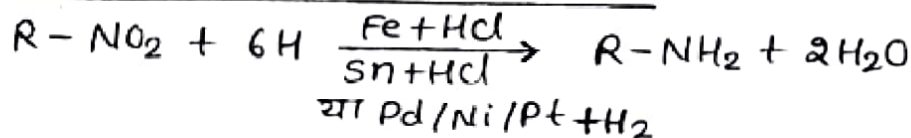 R - NO₂ + 6H \xrightarrow[Sn+HCl]{Fe+HCl} R-NH₂ + 2H₂O
या Pd/Ni/Pt +H₂